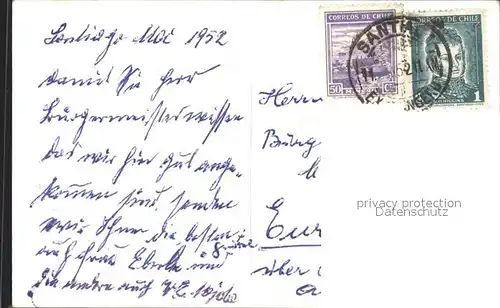 Santiago Mai 1952
damit Sie Herr
Bürgermeister wissen
das wir hir gut ange-
kommen sind, senden
wir Ihnen die besten
Grüße
auch Frau Eberle und
die andere auch
CORREOS DE CHILE
50 CTS
CORREOS DE CHILE
1
SANTIA
Herrn
Bürg
Eur
über
privacy protection
Datenschutz